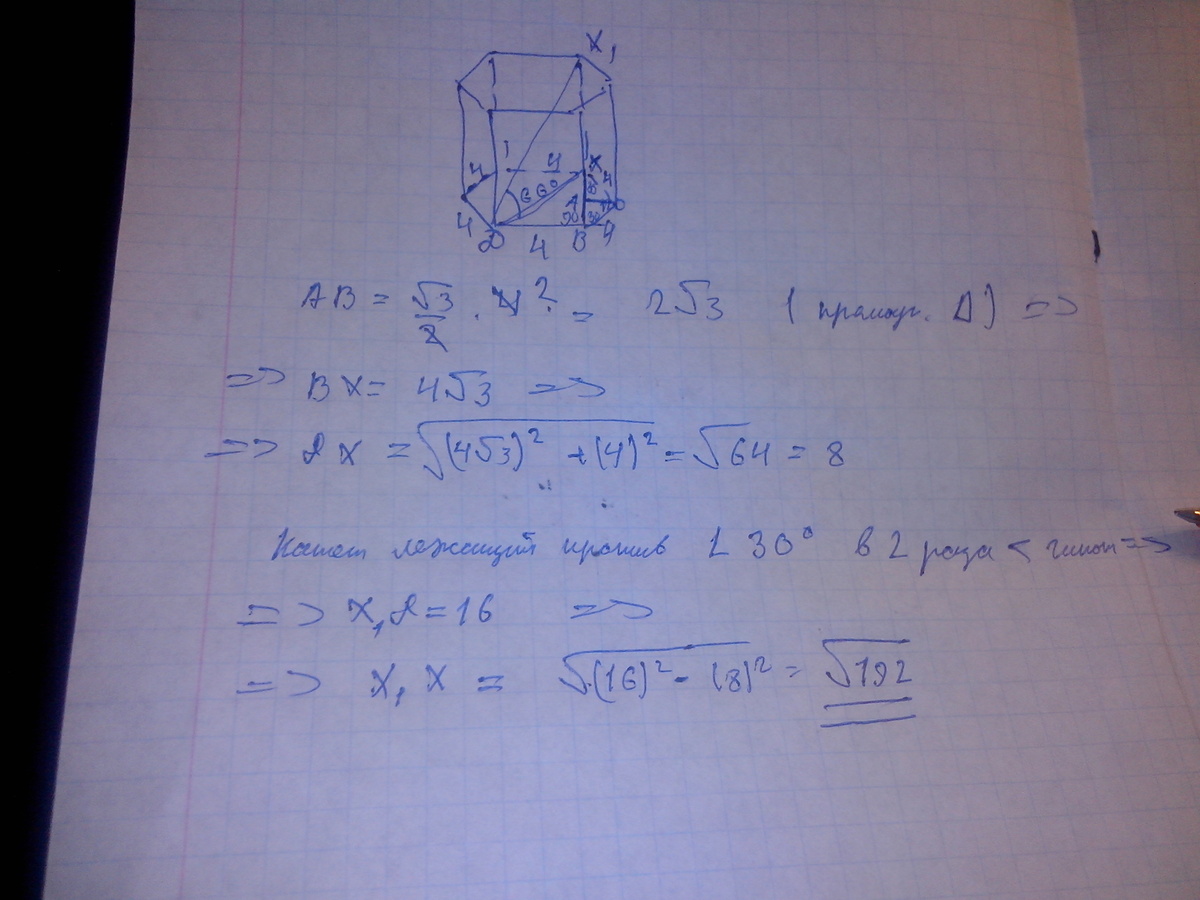 X₁
4 4 X 4
60° A 30
4 D 4 B 4
AB = √3/2 · 4 ² = 2√3 ( прямоуг. Δ) =>
=> BX = 4√3 =>
=> DX = √(4√3)² + (4)² = √64 = 8
Катет лежащий против ∠ 30° в 2 раза < гипот =>
=> X₁D = 16 =>
=> X₁X = √(16)² - (8)² = √192